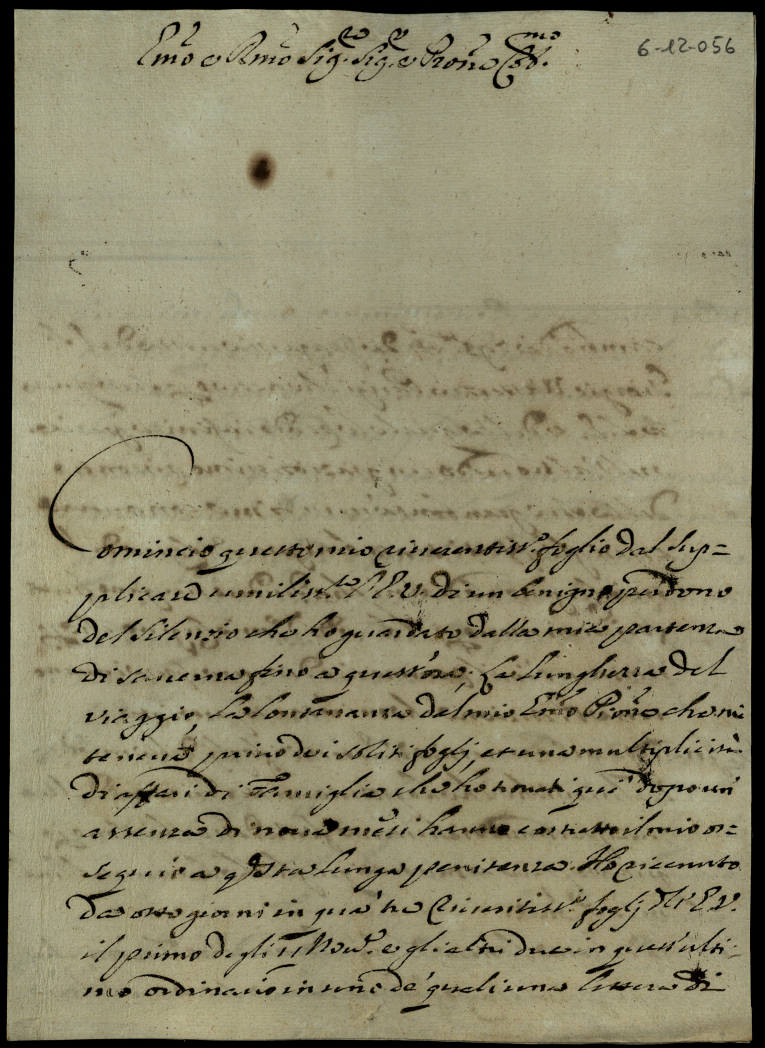 6-12-056
Emo e Rmo Sigre Sigre e Pron Colmo
Comincio questo mio riverentiss.° foglio dal sup=
plicare umiliss.te l'E.V. di un benigno perdono
del silenzio che ho guardato dalla mia partenza
di fino a quest'ora; La lunghezza del
viaggio, la lontananza del mio Emo Prone che mi
teneva privo dei soliti foglj, et una multiplicità
di affari di Famiglia che ho trovati quì dopo un'
assenza di nove mesi hanno costretto il mio os=
sequio a qsta lunga penitenza. Ho ricevuto
da otto giorni in quà tre riveritiss.i foglj dell'E.V.
il primo degli 11 Nov.e e gli altri due in quest'ulti-
mo ordinario in uno de' quali una lettera di